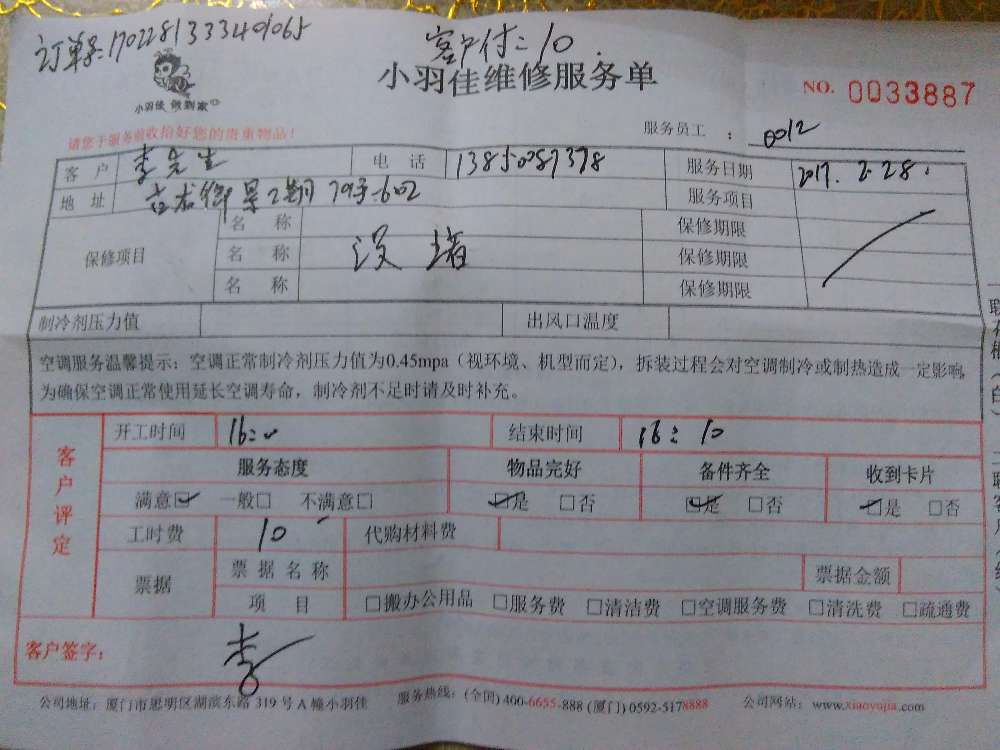 订单号:1702281333409065
客户付:10.
小羽佳 做到家
小羽佳维修服务单
NO. 0033887
请您于服务前收拾好您的贵重物品！
服务员工 : 0012
客 户 李先生 电 话 13850087378 服务日期 2017.2.28.
地 址 古龙御景2期79号602 服务项目
保修项目 名 称 保修期限
名 称 没堵 保修期限
名 称 保修期限
制冷剂压力值 出风口温度
空调服务温馨提示：空调正常制冷剂压力值为0.45mpa（视环境、机型而定），拆装过程会对空调制冷或制热造成一定影响，
为确保空调正常使用延长空调寿命，制冷剂不足时请及时补充。
客户评定
开工时间 16:00 结束时间 16:10
服务态度 物品完好 备件齐全 收到卡片
满意☑ 一般□ 不满意□ ☑是 □否 ☑是 □否 ☑是 □否
工时费 10 代购材料费
票据 票据名称 票据金额
项 目 □搬办公用品 □服务费 □清洁费 □空调服务费 □清洗费 □疏通费
客户签字： 李
公司地址：厦门市思明区湖滨东路 319 号 A 幢小羽佳 服务热线：(全国) 400-6655-888 (厦门) 0592-5178888 公司网站：www.xiaoyujia.com